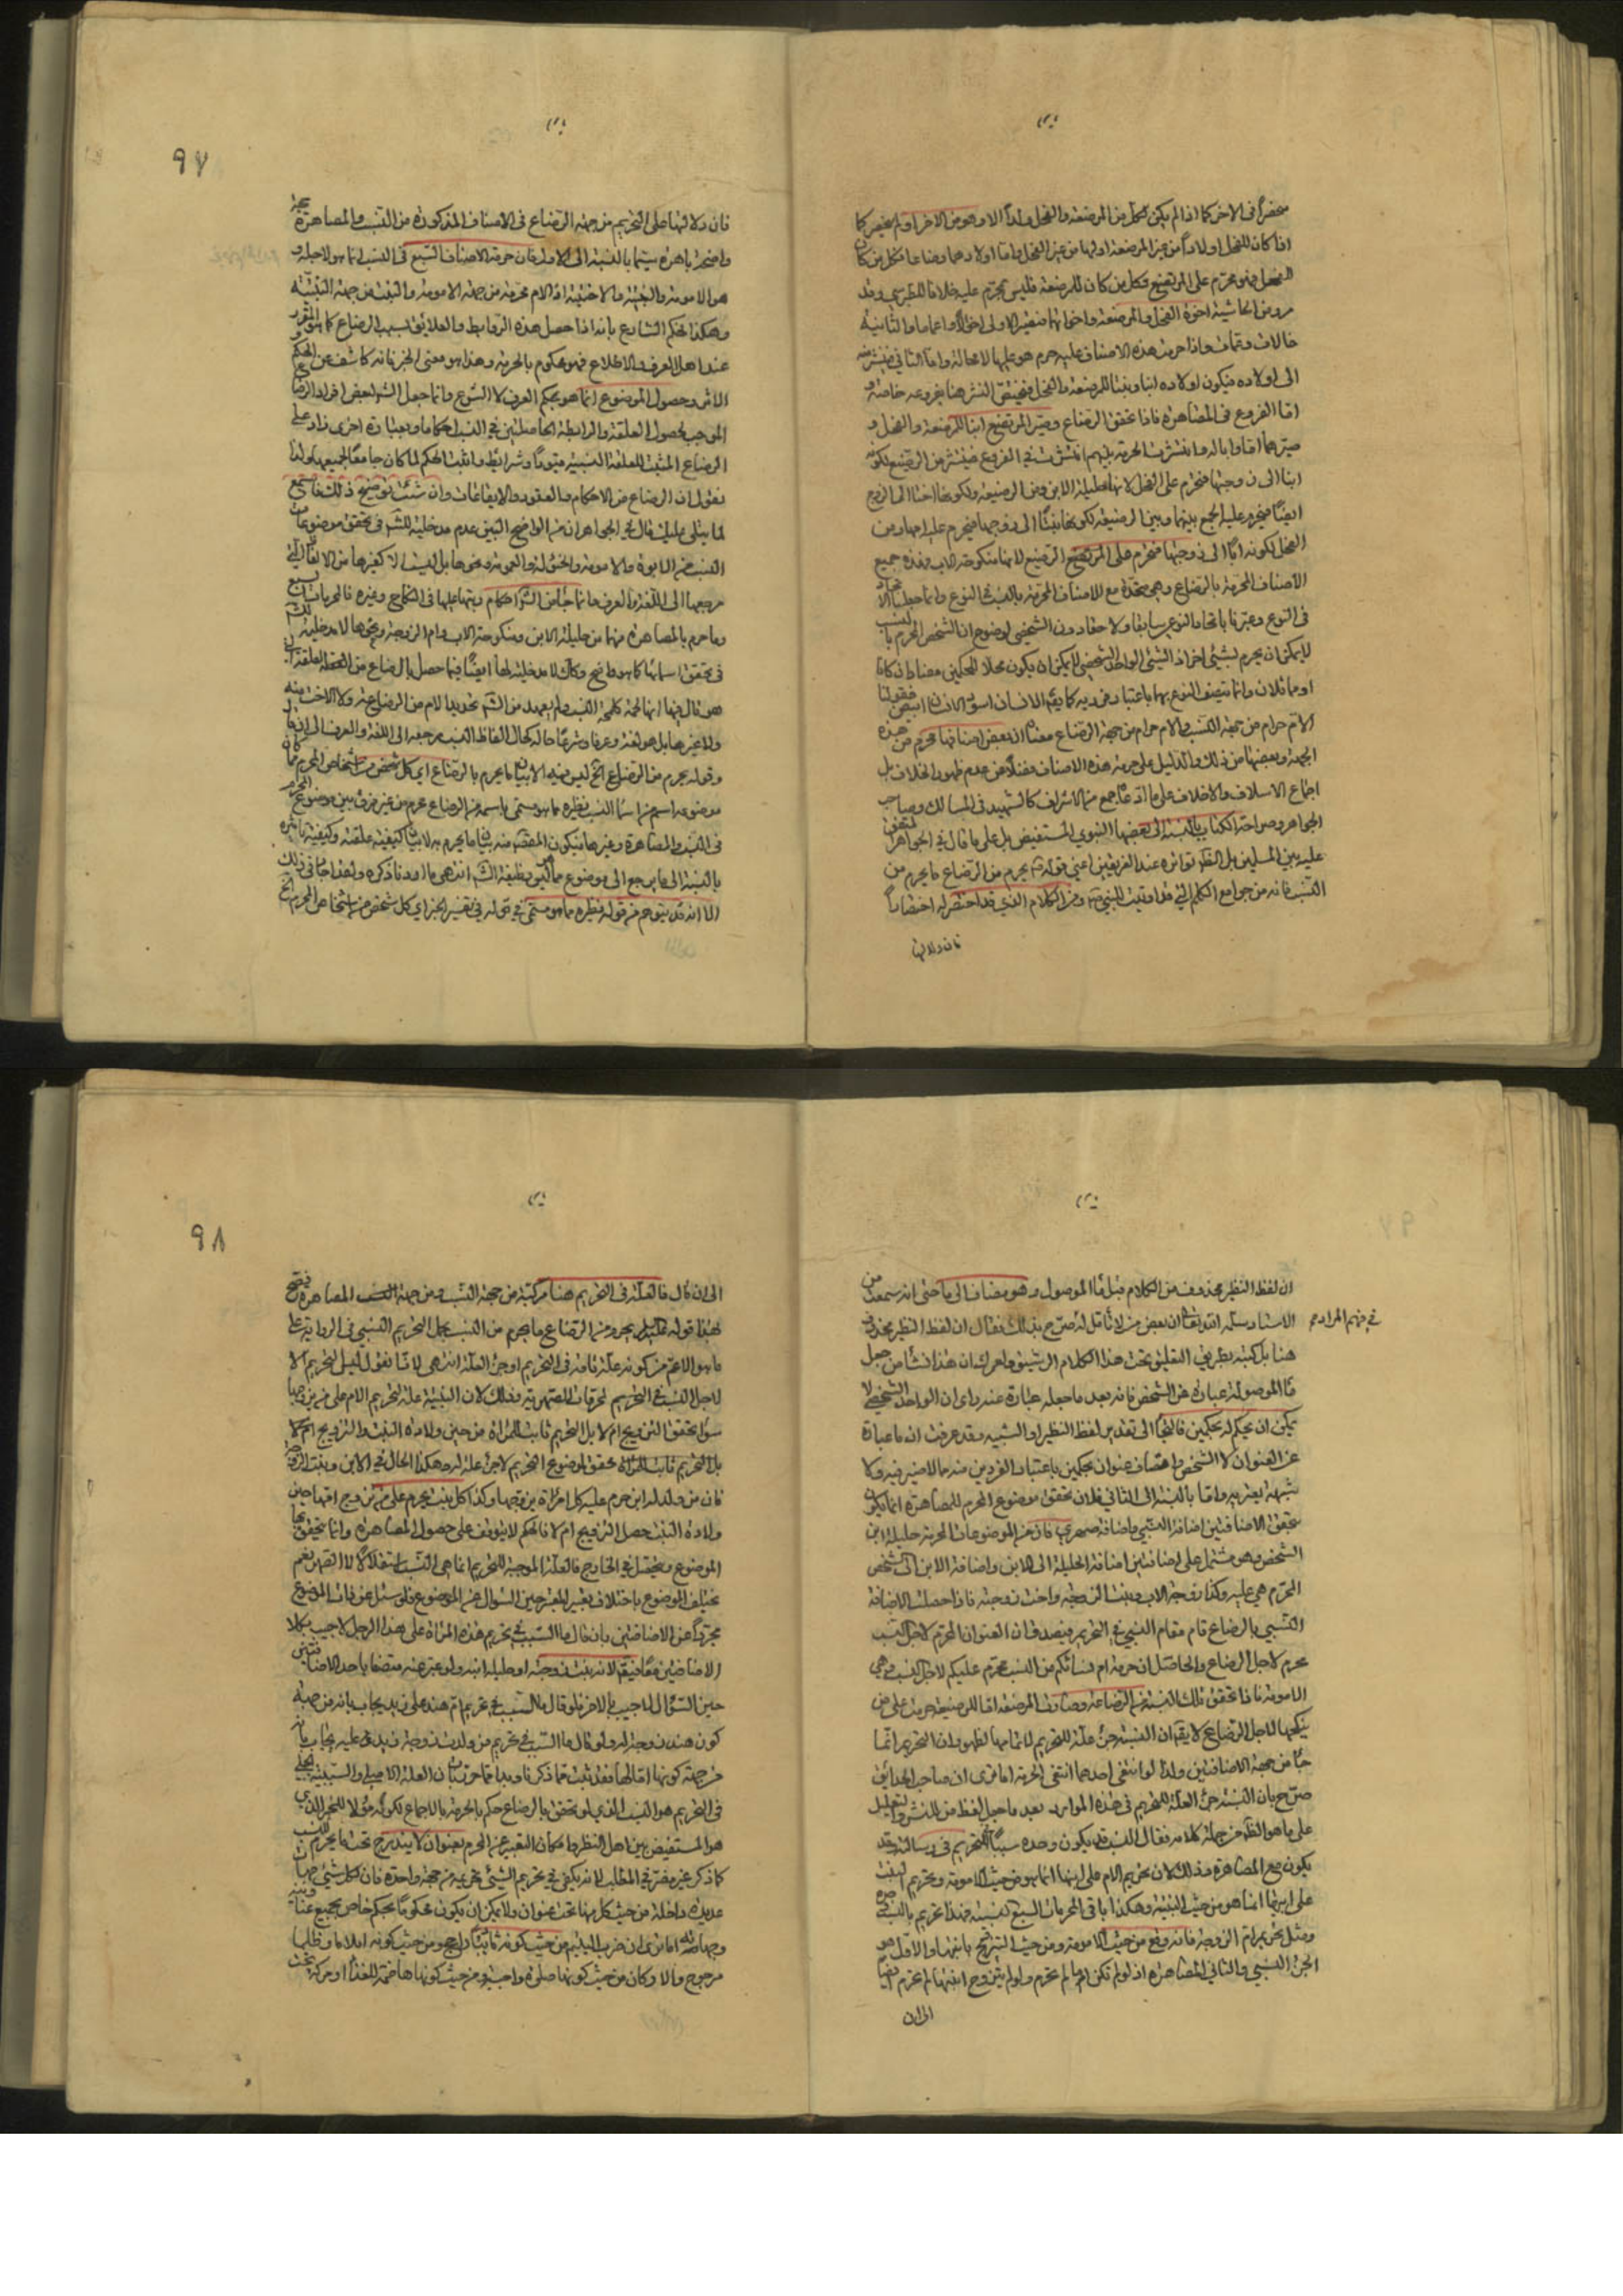 منحصراً فى الاخر كما اذا لم يكن لكل من المرضعة والفحل ولداً الا وهو من الاخر او لم ينحصر كما
اذا كان للفحل اولاداً من غير المرضعة او لها من غير الفحل واما اولادهما رضاعا فكل من كان
للفحل فهو محرم على المرتضع وكل من كان للمرضعة فليس بمحرم عليه خلافا للطبرسى وقد
من الحاشية اخوة الفحل والمرضعة واخواتهما فيصير الاولى اخوالاً واعماما والثانية
خالات وعمات واذا حرمت هذه الاصناف عليه حرم هو عليها لا محالة واما الثانى فينشر منه
الى اولاده فيكون اولاده ابنا وبنتا للمرضعة والفحل فيختص النشر هنا بفروعه خاصة و
اما الفروع فى المصاهرة فاذا تحقق الرضاع وصير المرتضع ابنا للمرضعة والفحل و
صيرهما اما وابا له وانتشرت الحرمة بينهم انتشرت فى الفروع فينشر من الرضيع لكونه
ابنا الى زوجتها فتحرم على الفحل لانها حليلة الابن ومن الرضيعة ولكونها اختا الى الزوج
ايضاً فيحرم عليه الجمع بينها وبين الرضيعة لكونها بنتاً الى زوجها فيحرم عليه امها ومن
الفحل لكونه اباً الى زوجتها فتحرم على المرتضع الرضيع لانها منكوحة الاب وهذه جميع
الاصناف المحرمة بالرضاع وهى متحدة مع الاصناف المحرمة بالنسب بالنوع وانما جعلنا الاتحاد
فى النوع وعبرنا باتحاد النوع سابقا ولاحقا دون الشخصى لوضوح ان الشخص المحرم بالنسب
لا يمكن ان يحرم بشيئ اخر اذ الشيئ الواحد الشخصى لا يمكن ان يكون محلا للحكمين
الام حرام من جهة النسب والام حرام من جهة الرضاع معناه ان بعض اصنافها محرم من هذه
الجهة وبعضها من ذلك والدليل على حرمة هذه الاصناف فضلاً عن عدم ظهور الخلاف بل
اجماع الاسلاف والاخلاف على ما ادعاه جمع من الاشراف كالشهيد فى المسالك وصاحب
الجواهر وصراحة الكتاب بالنسبة الى بعضها النبوى المستفيض بل على ما قال فى الجواهر المتفق
عليه بين المسلمين بل الظ تواتره عند الفريقين اعنى قوله ص يحرم من الرضاع ما يحرم من
النسب فانه من جوامع الكلم التى قد اوتيت للنبى ص ومن الكلام الذى قد اختصر له اختصاراً
فان دلالتها
٩٧
فان دلالتها على التحريم من جهة الرضاع فى الاصناف المذكورة من النسب والمصاهرة
واضحة باهرة سيما بالنسبة الى الاول فان حرمة الاصناف السبع فى النسب انما هو لاجله و
هو الامومة والبنتية والاختية اذ الام محرمة من جهة الامومة والبنت من جهة البنتية
وهكذا فحكم الشارع بانه اذا حصل هذه الروابط والعلائق بسبب الرضاع كما هو المقرر
عند اهل العرف والاطلاع فهو محكوم بالحرمة وهذا هو معنى الخبر فانه كاشف عن الحكم
الموجب لحصول العلقة والرابطة الحاصلتين فى النسب احكاما وبعبارة اخرى زاد على
الرضاع المثبت للعلقة النسبية قيوداً وشرائط واثبت الحكم لما كان جامعاً لجميعها ولذا
نقول ان الرضاع من الاحكام والعقود والايقاعات وان شئت توضيح ذلك فاستمع
لما يتلى عليك قال فى الجواهر ان من الواضح البين عدم مدخلية للش فى تحقق موضوعات
النسب من الابوة والامومة والخئولة والعمومة ونحوها بل ليست الا كغيرها من الالفاظ التى
مرجعها الى اللغة والعرف وانما جاء من الش احكام رتبها عليها فى النكاح وغيره فالمحرمات السبع
وما حرم بالمصاهرة منها من حليلة الابن ومنكوحة الاب وام الزوجة ونحوها لا مدخلية للش
فى تحقق اسمائها كما هو واضح وكذلك لا مدخلية لها ايضاً فيما حصل بالرضاع من
هو قال فيها انها لحمة كلحمة النسب ولم يعهد من الش تحديد الام من الرضاعة ولا الاخت منه
ولا غيرها بل هو لغة وعرفا وشرعا حاله كحال الفاظ النسب مرجعه الى اللغة والعرف الى ان قال
وقوله يحرم من الرضاع الخ ليس فيه الا بيان ما يحرم بالرضاع اى كل شخص من اشخاص المحرم
موضوعه اسم من اسماء النسب نظيره مما هو مسمى باسمه من الرضاع محرم من غير فرق بين موضوع المحرم
فى النسب والمصاهرة وغيرها فيكون المقصد منه بيان ما يحرم به لا بيان كيفية علقته وكيفية تاثيره
بالنسبة الى ما يرجع الى موضوع مما ليس وظيفة الش انتهى ما اردنا ذكره ولقد اجاد فى ذلك
الا انه قد يتوهم من قوله نظيره مما هو مسمى فى قوله فى تفسير الخبر اى كل شخص من اشخاص المحرم الخ
ان لفظ النظير محذوف من الكلام قبل ما الموصول وهو مضاف الى ما حتى انه سمعت من
الاستاد سلمه الله تعالى ان بعض من لا تامل له صرح بذلك فقال ان لفظ النظير محذوف
فى فهم المراد
هنا بل كتبه بطريق التعليق تحت هذا الكلام الرشيق ولعمرك ان هذا نشا من جعل
ما الموصولة عبارة عن الشخص فانه بعد ما جعله عبارة عنه راى ان الواحد الشخصى لا
يمكن ان يحكم له بحكمين فالتجأ الى تقدير لفظ النظير او الشبيه وقد عرفت ان ما عبارة
عن العنوان لا الشخص واتصاف عنوان بحكمين باعتبار الفردين منه مما لا ضير فيه ولا
شبهة يعتريه واما بالنسبة الى الثانى فلان تحقق موضوع المحرم للمصاهرة انما يكون
بتحقق الاضافتين اضافة النسبى واضافة صهرى فان من الموضوعات المحرمة حليلة ابن
الشخص وهو مشتمل على اضافتين اضافة الحليلة الى الابن واضافة الابن الى الشخص
المحرم هى عليه وكذا زوجة الاب وبنت الزوجة واخت زوجته فاذا حصلت الاضافة
النسبى بالرضاع قام مقام النسبى فى التحريم فيصدق ان العنوان المحرم لاجل النسب
محرم لاجل الرضاع والحاصل ان حرمة ام نسائكم من النسب محرم عليكم لاجل النسب وهى
الامومة فاذا تحقق تلك النسبة من الرضاعة وصارت المرضعة اما للرضيعة حرمت على من
ينكحها لاجل الرضاع لا يقال ان النسبة جزء علة للتحريم لا تمامها لظهور ان التحريم انما
جاء من جهة الاضافتين ولذا لو انتفى احدهما انتفى الحرمة اما ترى ان صاحب الحدائق
صرح بان النسبة جزء العلة للتحريم فى هذه الموارد بعد ما جعل لفظ من للنشو والتعليل
على ما هو الظ من جملة كلامه فقال النسب قد يكون وحده سبباً للتحريم فى رسالته وقد
يكون مع المصاهرة وذلك لان تحريم الام على ابنها انما هو من حيث الامومة وتحريم البنت
على ابيها انما هو من حيث البنتية وهكذا باقى المحرمات السبع
ومثل تحريم ام الزوجة فانه وقع من حيث الامومة ومن حيث التزويج بابنتها والاول هو
الجزء النسبى والثانى المصاهرة اذ لو لم تكن اما لم تحرم ولو لم يتزوج ابنتها لم تحرم ايضاً
الى ان
٩٨
الى ان قال فالعلة فى التحريم هنا مركبة من جهة النسب ومن جهة المصاهرة
ما هو الاعم من كونه علة تامة فى التحريم او جزء العلة انتهى لانا نقول ليس التحريم الا
لاجل النسب فى التحريم لمحرمات الصهرية وذلك لان البنتية علة لتحريم الام على من تزوجها
سواء تحقق التزويج ام لا بل التحريم ثابت للمراة من حين ولادة البنت والتزويج ام لا
فان من ولد له ابن حرم عليه كل امرأة يزوجها وكذا كل بنت يحرم على من تزوج امها حين
ولادة البنت حصل التزويج ام لا فالحكم لا يتوقف على حصول المصاهرة وانما يتحقق بها
الموضوع ويحصل فى الخارج فالعلة الموجبة للتحريم انما هى النسب استقلالاً لا الصهر نعم
يختلف الموضوع باختلاف تعبير المعبرين حين السؤال عن الموضوع فلو سئل عن ذات الموضوع
مجرداً عن الاضافتين بان قال ما السبب فى تحريم هذه المراة على هذا الرجل لاجيب بكلا
الاضافتين معاً فيقال لانه بنت زوجته او حليلة ابنه ولو عبر عنه متصفا باحد الاضافتين
حين السؤال لاجيب بالاخر فلو قال ما السبب فى تحريم ام هند على زيد يجاب بانه من جهة
كون هند زوجة له ولو قال ما السبب فى تحريم من ولدت زوجة زيد على عليه يجاب بان
من جهة كونها اما لها فقد ثبت مما ذكرنا وبيناه ان العلة الاصلى والسببية
فى التحريم هو النسب الذى لو تحقق بالرضاع حكم بالحرمة بالاجماع لكونه مدلولا للخبر الذى
هو المستفيض بين اهل النظر وامكان التعبير عن المحرم بعنوان لا يندرج تحت ما يحرم من النسب
كما ذكر غير مضر فى المطلب لانه يكفى فى تحريم الشيئ تحريمه من جهة واحدة فان لكل شيئ جهات
عديدة داخلة من حيث كل منها تحت عنوان ولا يمكن ان يكون محكوماً بحكم خاص بجميع عناوينه
وجهاته اما ترى ان ضرب اليتيم من حيث كونه تاديباً راجح ومن حيث كونه ايلاما وظلما
مرجوح والاركان من حيث كونها صلوة واجبة ومن حيث كونها هاضمة للغذاء او حركة تحت